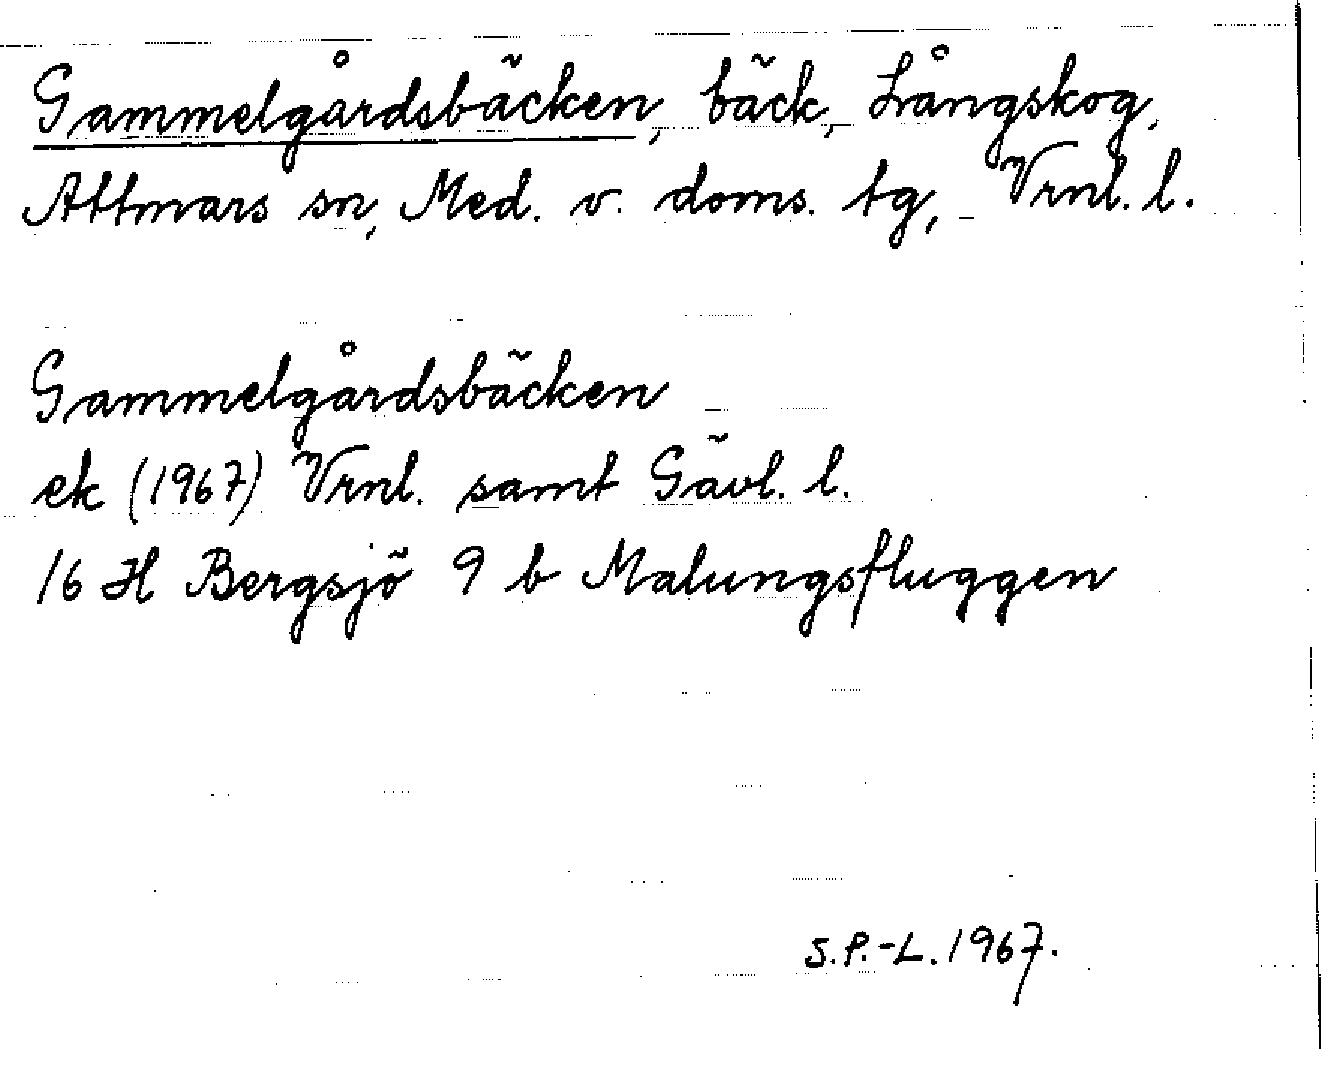 Gammelgårdsbäcken, bäck, Långskog,
Attmars sn, Med. v. doms. tg, Vrnl. l.
Gammelgårdsbäcken
ek (1967) Vrnl. samt Gävl. l.
16 H Bergsjö 9 b Malungsfluggen
S.P.-L. 1967.